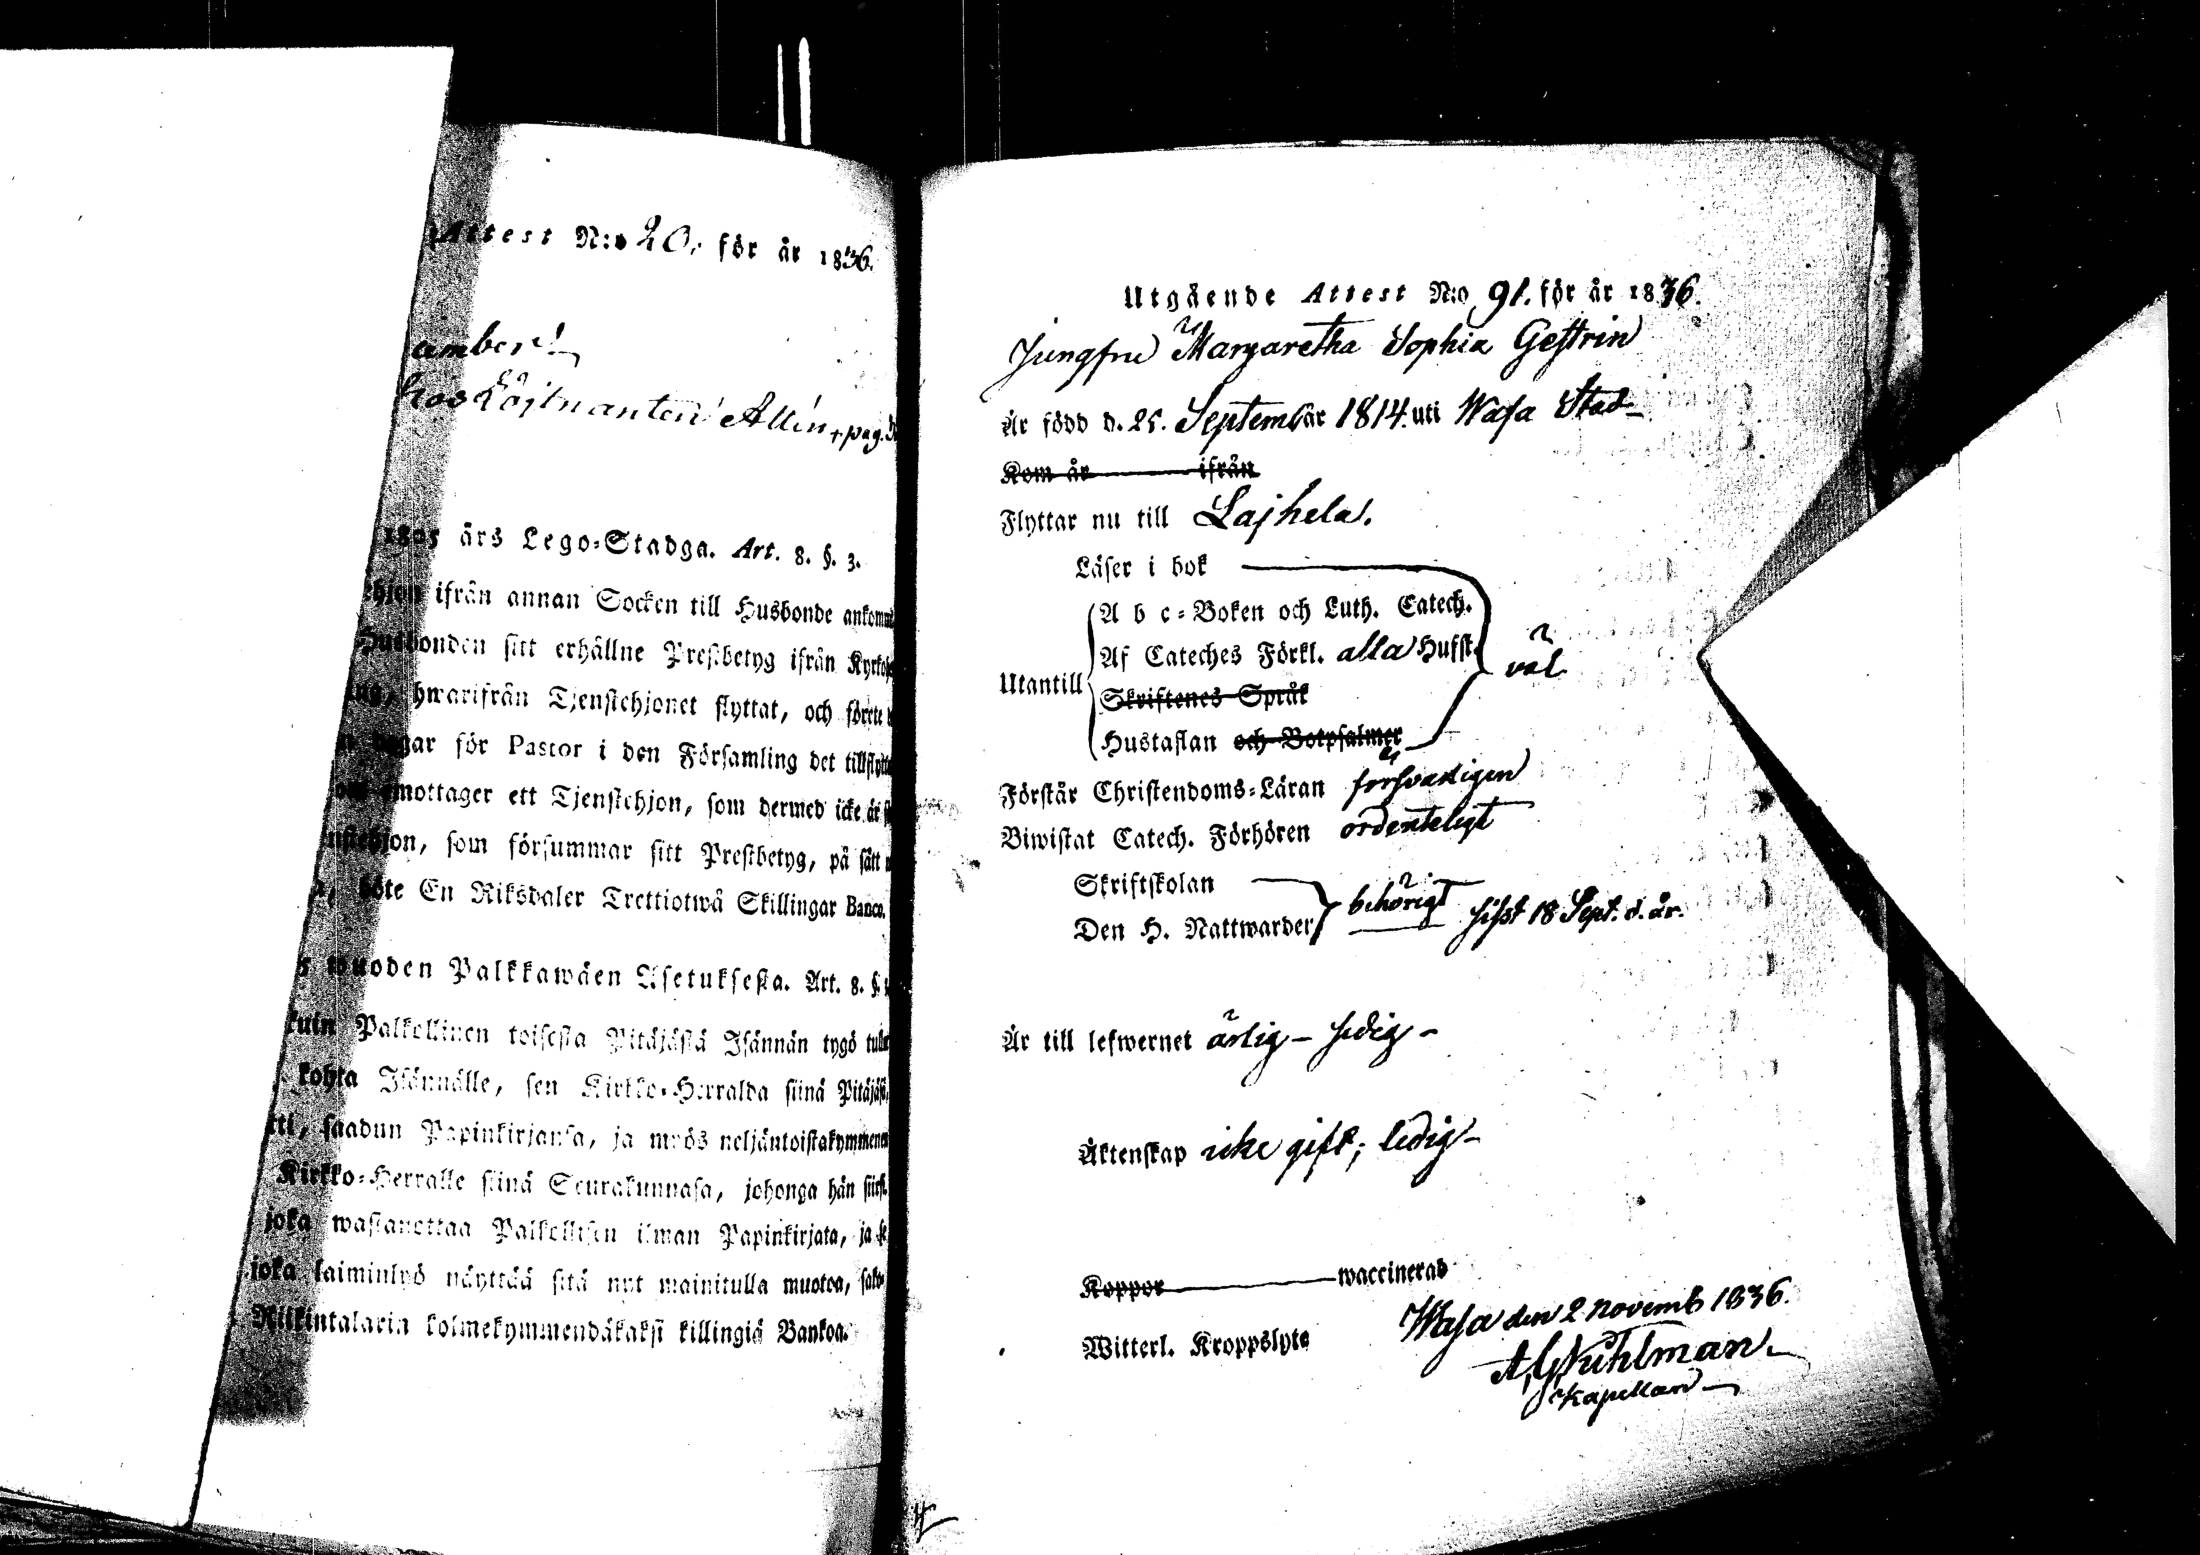 Attest N:o 20. för år 1836.
hos Löjtnanten Allén, pag.
1805 års Lego-Stadga. Art. 8. §. 3.
ifrån annan Socken till Husbonde
Husbonden sitt erhållne Prestbetyg ifrån
hwarifrån Tjenstehjonet flyttat, och förete
dagar för Pastor i den Församling det
emottager ett Tjenstehjon, som dermed icke är
som försummar sitt Prestbetyg, på sätt
böte En Riksdaler Trettiotwå Skillingar Banco.
wuoden Palkkawäen Asetuksesta. Art. 8. §.
kuin Palkollinen toisesta Pitäjästä Isännän tygö
kohta Isännälle, sen Kirkko-Herralda siinä
saadun Papinkirjansa, ja myös
Kirkko-Herralle siinä Seurakunnasa, johonga hän
joka wastanottaa Palkollisen ilman Papinkirjata, ja
joka laiminlyö näyttää sitä nyt mainitulla muotoa,
Riikintalaria kolmekymmendäkaksi killingiä Bankoa.
Utgående Attest N:o 91. för år 1836.
Jungfru Margaretha Sophia Gestrin
Är född d. 25. September 1814. uti Wasa Stad
Kom år ifrån
Flyttar nu till Lajhela.
Läser i bok
A b c-Boken och Luth. Catech.
Af Cateches Förkl. alla Hufst.
Utantill väl
Skriftenes Språk
Hustaflan och Botpsalmer
Förstår Christendoms-Läran försvarligen
Biwistat Catech. Förhören ordenteligt
Skriftskolan
Den H. Nattwarden behörigt sist 18 Sept. d. år.
Är till lefwernet ärlig - sedig -
Äktenskap icke gift; ledig -
Koppor waccinerad
Wasa den 2 Novemb 1836.
Witterl. Kroppslyte
Kapellan